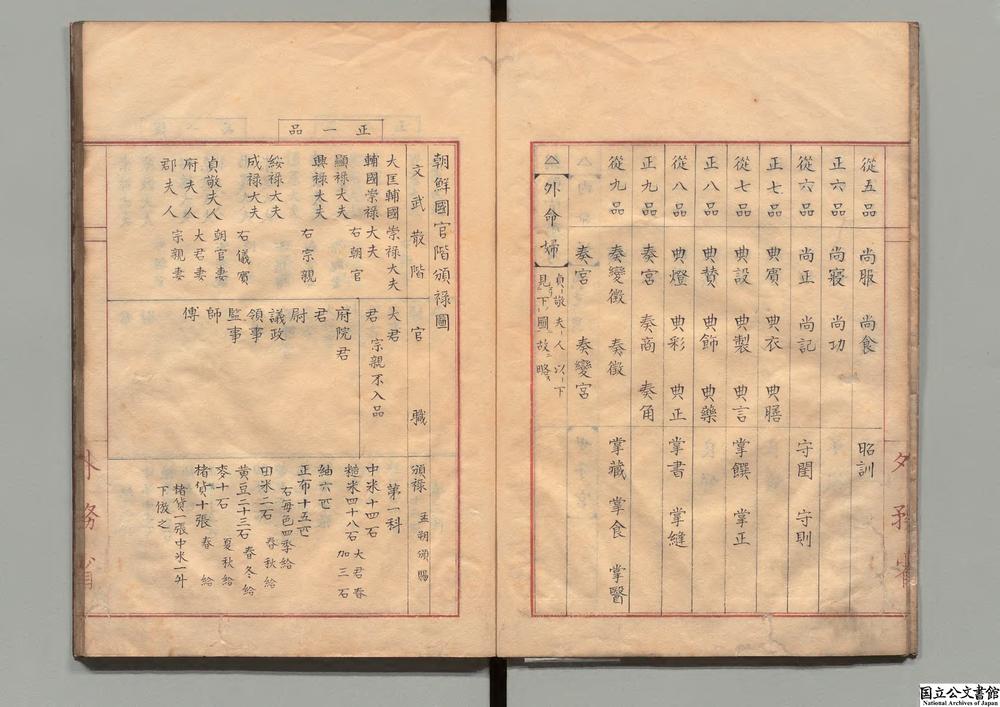 從五品 尚服 尚食 昭訓
正六品 尚寢 尚功
從六品 尚正 尚記 守閨 守則
正七品 典賓 典衣 典膳
從七品 典設 典製 典言 掌饌 掌正
正八品 典贊 典飾 典藥
從八品 典燈 典彩 典正 掌書 掌縫
正九品 奏宮 奏商 奏角
從九品 奏變徵 奏徵 掌藏 掌食 掌醫
奏宮 奏變宮
△【外命婦】貞敬夫人以下
見下圖故略ス
朝鮮國官階頒祿圖
正一品
文武散階 官職 頒祿 孟朔頒賜
大匡輔國崇祿大夫
輔國崇祿大夫 右朝官
顯祿大夫
興祿大夫 右宗親
綏祿大夫
成祿大夫 右儀賓
貞敬夫人 朝官妻
府夫人 大君妻
郡夫人 宗親妻
大君
君 宗親不入品
府院君
君
尉
議政
領事
監事
師
傅
第一科
中米十四石
糙米四十八石 大君春加三石
紬六匹
正布十五匹
右每色四季給
田米二石 春秋給
黃豆二十三石 春冬給
麥十石 夏秋給
楮貨十張 春給
楮貨一張中米一升
下倣之
外務省
外務省
国立公文書館
National Archives of Japan